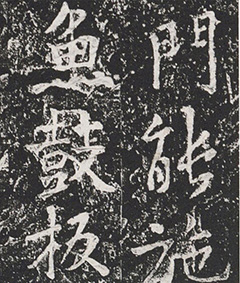 門能施
魚鼓板